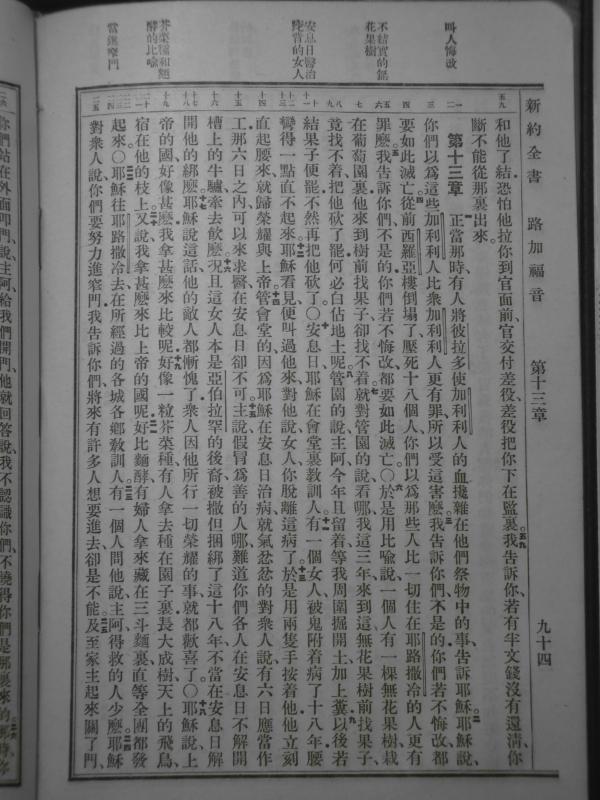 新約全書 路加福音 第十三章 九十四
叫人悔改
不結實的無花果樹
安息日醫治駝背的女人
芥菜種和麵酵的比喻
當進窄門
和他了結恐怕他拉你到官面前官交付差役差役把你下在監裏我告訴你若有半文錢沒有還淸你
斷不能從那裏出來
第十三章 正當那時有人將彼拉多使加利利人的血攙雜在他們祭物中的事告訴耶穌耶穌說
你們以爲這些加利利人比衆加利利人更有罪所以受這害麽我告訴你們不是的你們若不悔改都
要如此滅亡從前西羅亞樓倒塌了壓死十八個人你們以爲那些人比一切住在耶路撒冷的人更有
罪麽我告訴你們不是的你們若不悔改都要如此滅亡〇於是用比喻說一個人有一棵無花果樹栽
在葡萄園裏他來到樹前找果子卻找不着就對管園的說看哪我這三年來到這無花果樹前找果子
竟找不着把他砍了罷何必白佔地土呢管園的說主阿今年且留着等我周圍掘開土加上糞以後若
結果子便罷不然再把他砍了〇安息日耶穌在會堂裏敎訓人有一個女人被鬼附着病了十八年腰
彎得一點直不起來耶穌看見便叫過他來對他說女人你脫離這病了於是用兩隻手按着他他立刻
直起腰來就歸榮耀與上帝管會堂的因爲耶穌在安息日治病就氣忿忿的對衆人說有六日應當作
工那六日之內可以來求醫在安息日卻不可主說假冒爲善的人哪難道你們各人在安息日不解開
槽上的牛驢牽去飲麽况且這女人本是亞伯拉罕的後裔被撒但捆綁了這十八年不當在安息日解
開他的綁麽耶穌說這話他的敵人都慚愧了衆人因他所行一切榮耀的事就都歡喜了〇耶穌說上
帝的國好像甚麽我拿甚麽來比較呢好像一粒芥菜種有人拿去種在園子裏長大成樹天上的飛鳥
宿在他的枝上又說我拿甚麽來比上帝的國呢好比麵酵有婦人拿來藏在三斗麵裏直等全團都發
起來〇耶穌往耶路撒冷去在所經過的各城各鄉敎訓人有一個人問他說主阿得救的人少麽耶穌
對衆人說你們要努力進窄門我告訴你們將來有許多人想要進去卻是不能及至家主起來關了門
你們站在外面叩門說主阿給我們開門他就回答說我不認識你們不曉得你們是那裏來的那時